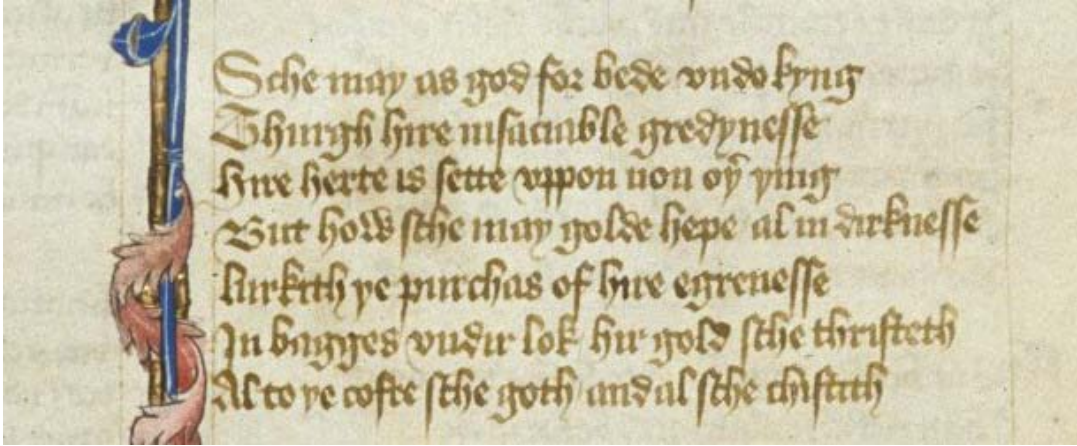 Sche may as god for bede vndo kyng
Thurgh hire insaciable gredynesse
Hire herte is sette vppon non oyr ying
But how sche may golde hepe al in dirknesse
lurkith ye purchas of hire egrenesse
In bagges vndir lok hir gold sche thristeth
Al to ye cofre sche goth and al sche chistith